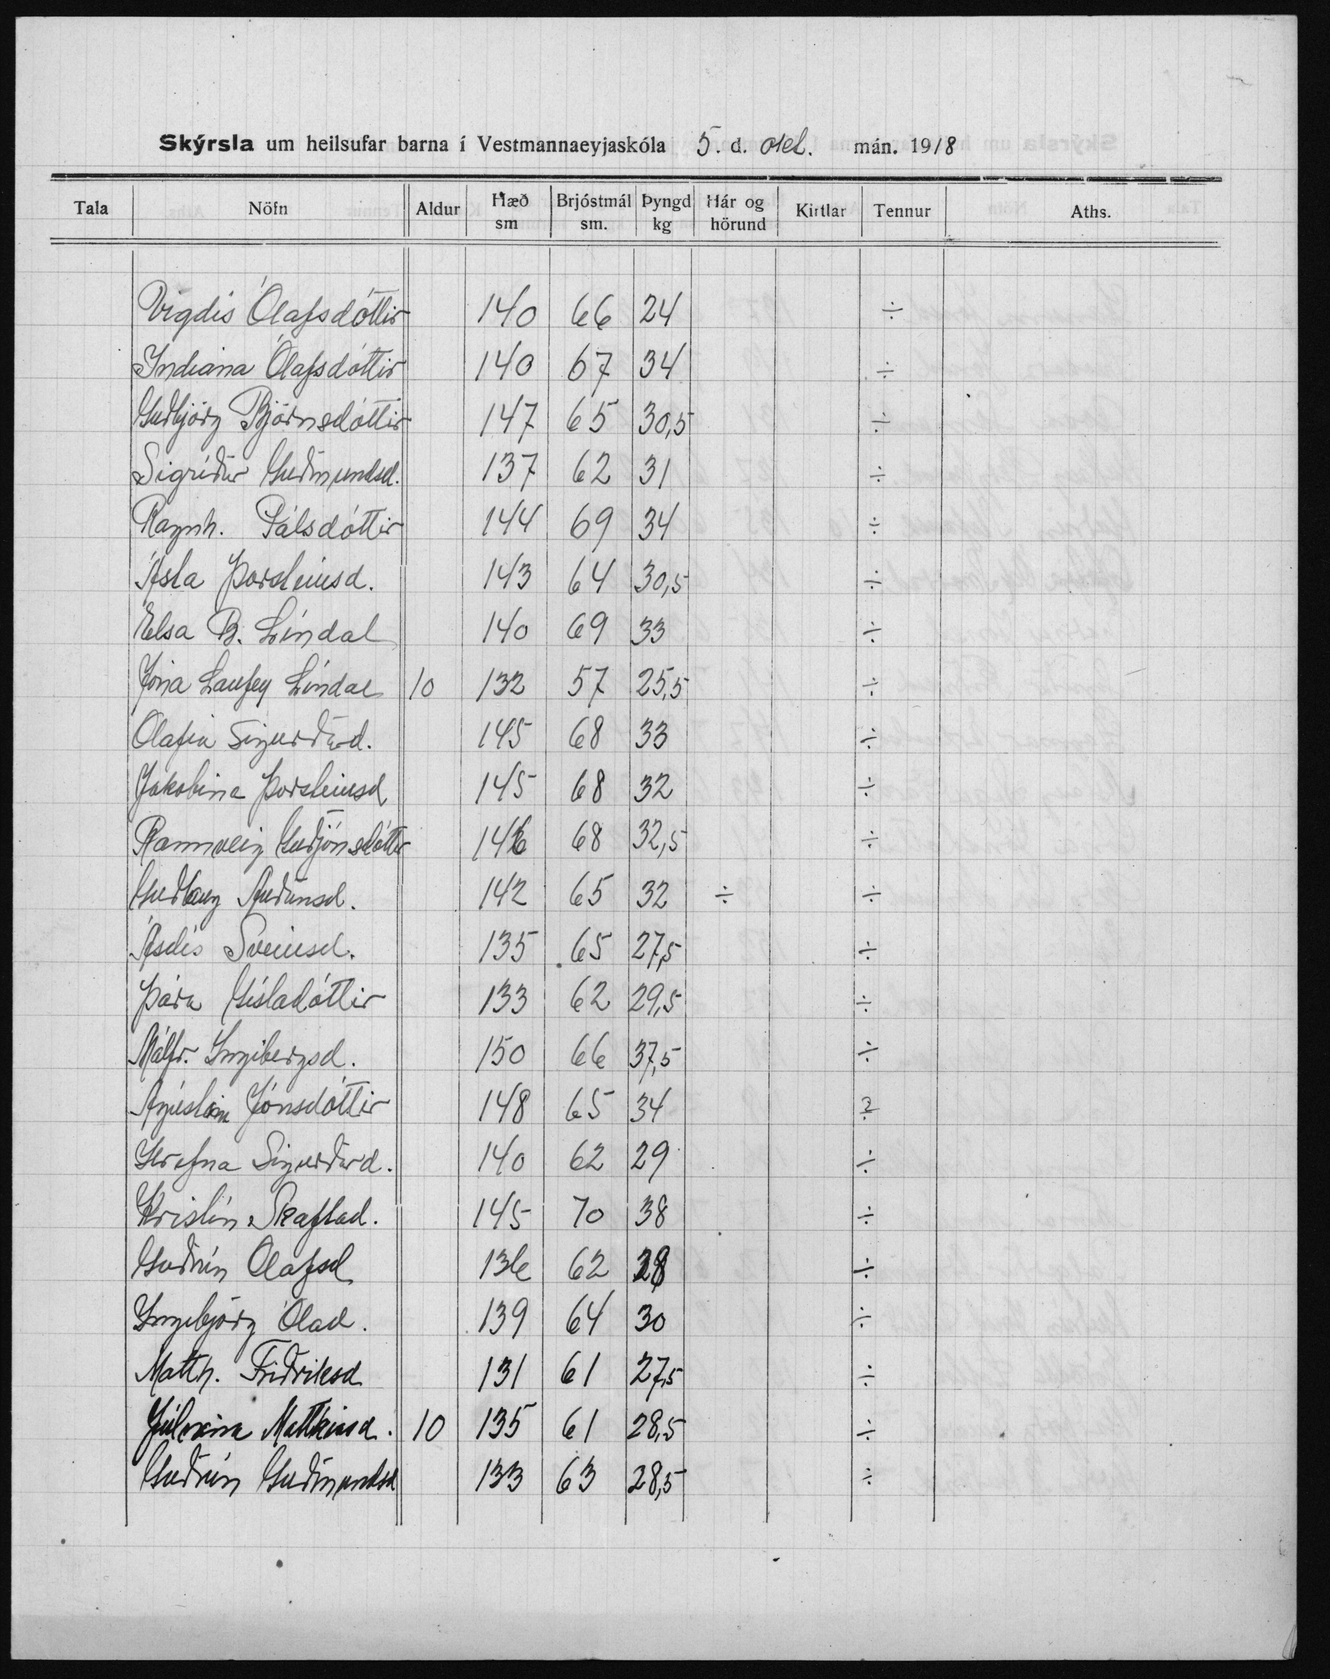 Skýrsla um heilsufar barna í Vestmannaeyjaskóla 5. d. okt. mán. 1918
Tala Nöfn Aldur Hæð sm Brjóstmál sm. Þyngd kg Hár og hörund Kirtlar Tennur Aths.
Vigdís Ólafsdóttir 140 66 24 ÷
Indíana Ólafsdóttir 140 67 34 ÷
Guðbjörg Björnsdóttir 147 65 30,5 ÷
Sigríður Guðmundsd. 137 62 31 ÷
Ragnh. Pálsdóttir 144 69 34 ÷
Ásta Þorsteinsd. 143 64 30,5 ÷
Elsa B. Líndal 140 69 33 ÷
Jóna Laufey Líndal 10 132 57 25,5 ÷
Ólafía Sigurðard. 145 68 33 ÷
Jakobína Þorsteinsd. 145 68 32 ÷
Rannveig Guðjónsdóttir 146 68 32,5 ÷
Guðlaug Auðunsd. 142 65 32 ÷ ÷
Ásdís Sveinsd. 135 65 27,5 ÷
Þóra Gísladóttir 133 62 29,5 ÷
Málfr. Ingibergsd. 150 66 37,5 ÷
Ágústína Jónsdóttir 148 65 34
Hrefna Sigurðard. 140 62 29 ÷
Kristín Skaftad. 145 70 38 ÷
Guðrún Ólafsd 136 62 28 ÷
Ingibjörg Ólad. 139 64 30 ÷
Matth. Friðriksd 131 61 27,5 ÷
Matthíasd. 10 135 61 28,5 ÷
Guðrún Guðmundsd 133 63 28,5 ÷